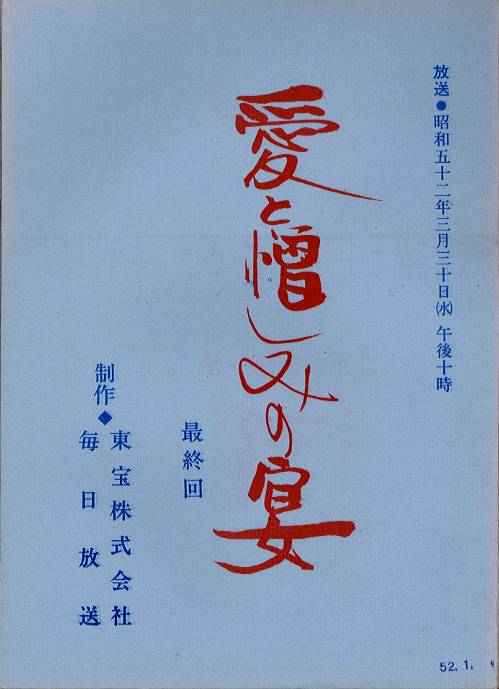 放送●昭和五十二年三月三十日㈬午後十時
愛と憎しみの宴
最終回
制作◆東宝株式会社
毎日放送
52.1.